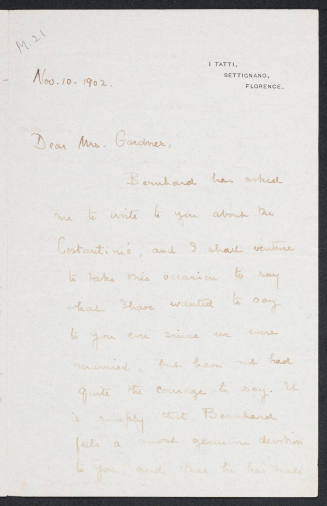 M.21
I TATTI,
SETTIGNANO,
FLORENCE.
Nov. 10. 1902.
Dear Mrs. Gardner,
Bernhard has asked
me to write to you about the
Costantini's, and I shall venture
to take this occasion to say
what I have wanted to say
to you ever since we were
married, but have not had
quite the courage to say. It
is simply that Bernhard
feels a most genuine devotion
to you, and that he has